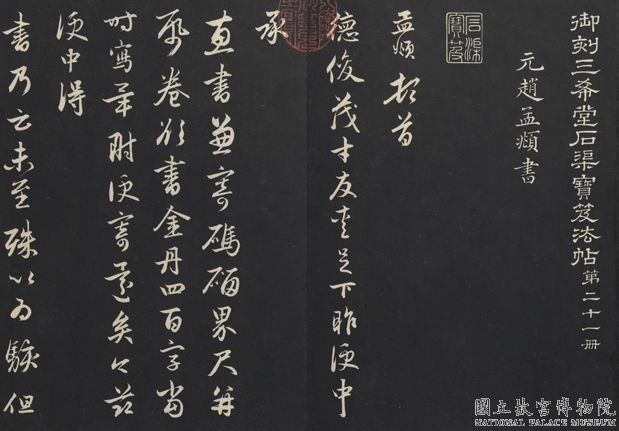 御刻三希堂石渠寶笈法帖第二十一冊
元趙孟頫書
石渠寶笈
孟頫頓首
德俊茂才友愛足下昨便中
承
惠書兼寄碼碯界尺并
紙卷欲書金丹四百字當
時寫畢附便寄還矣今茲
便中得
書乃云未至殊以為駭但
國立故宮博物院
NATIONAL PALACE MUSEUM